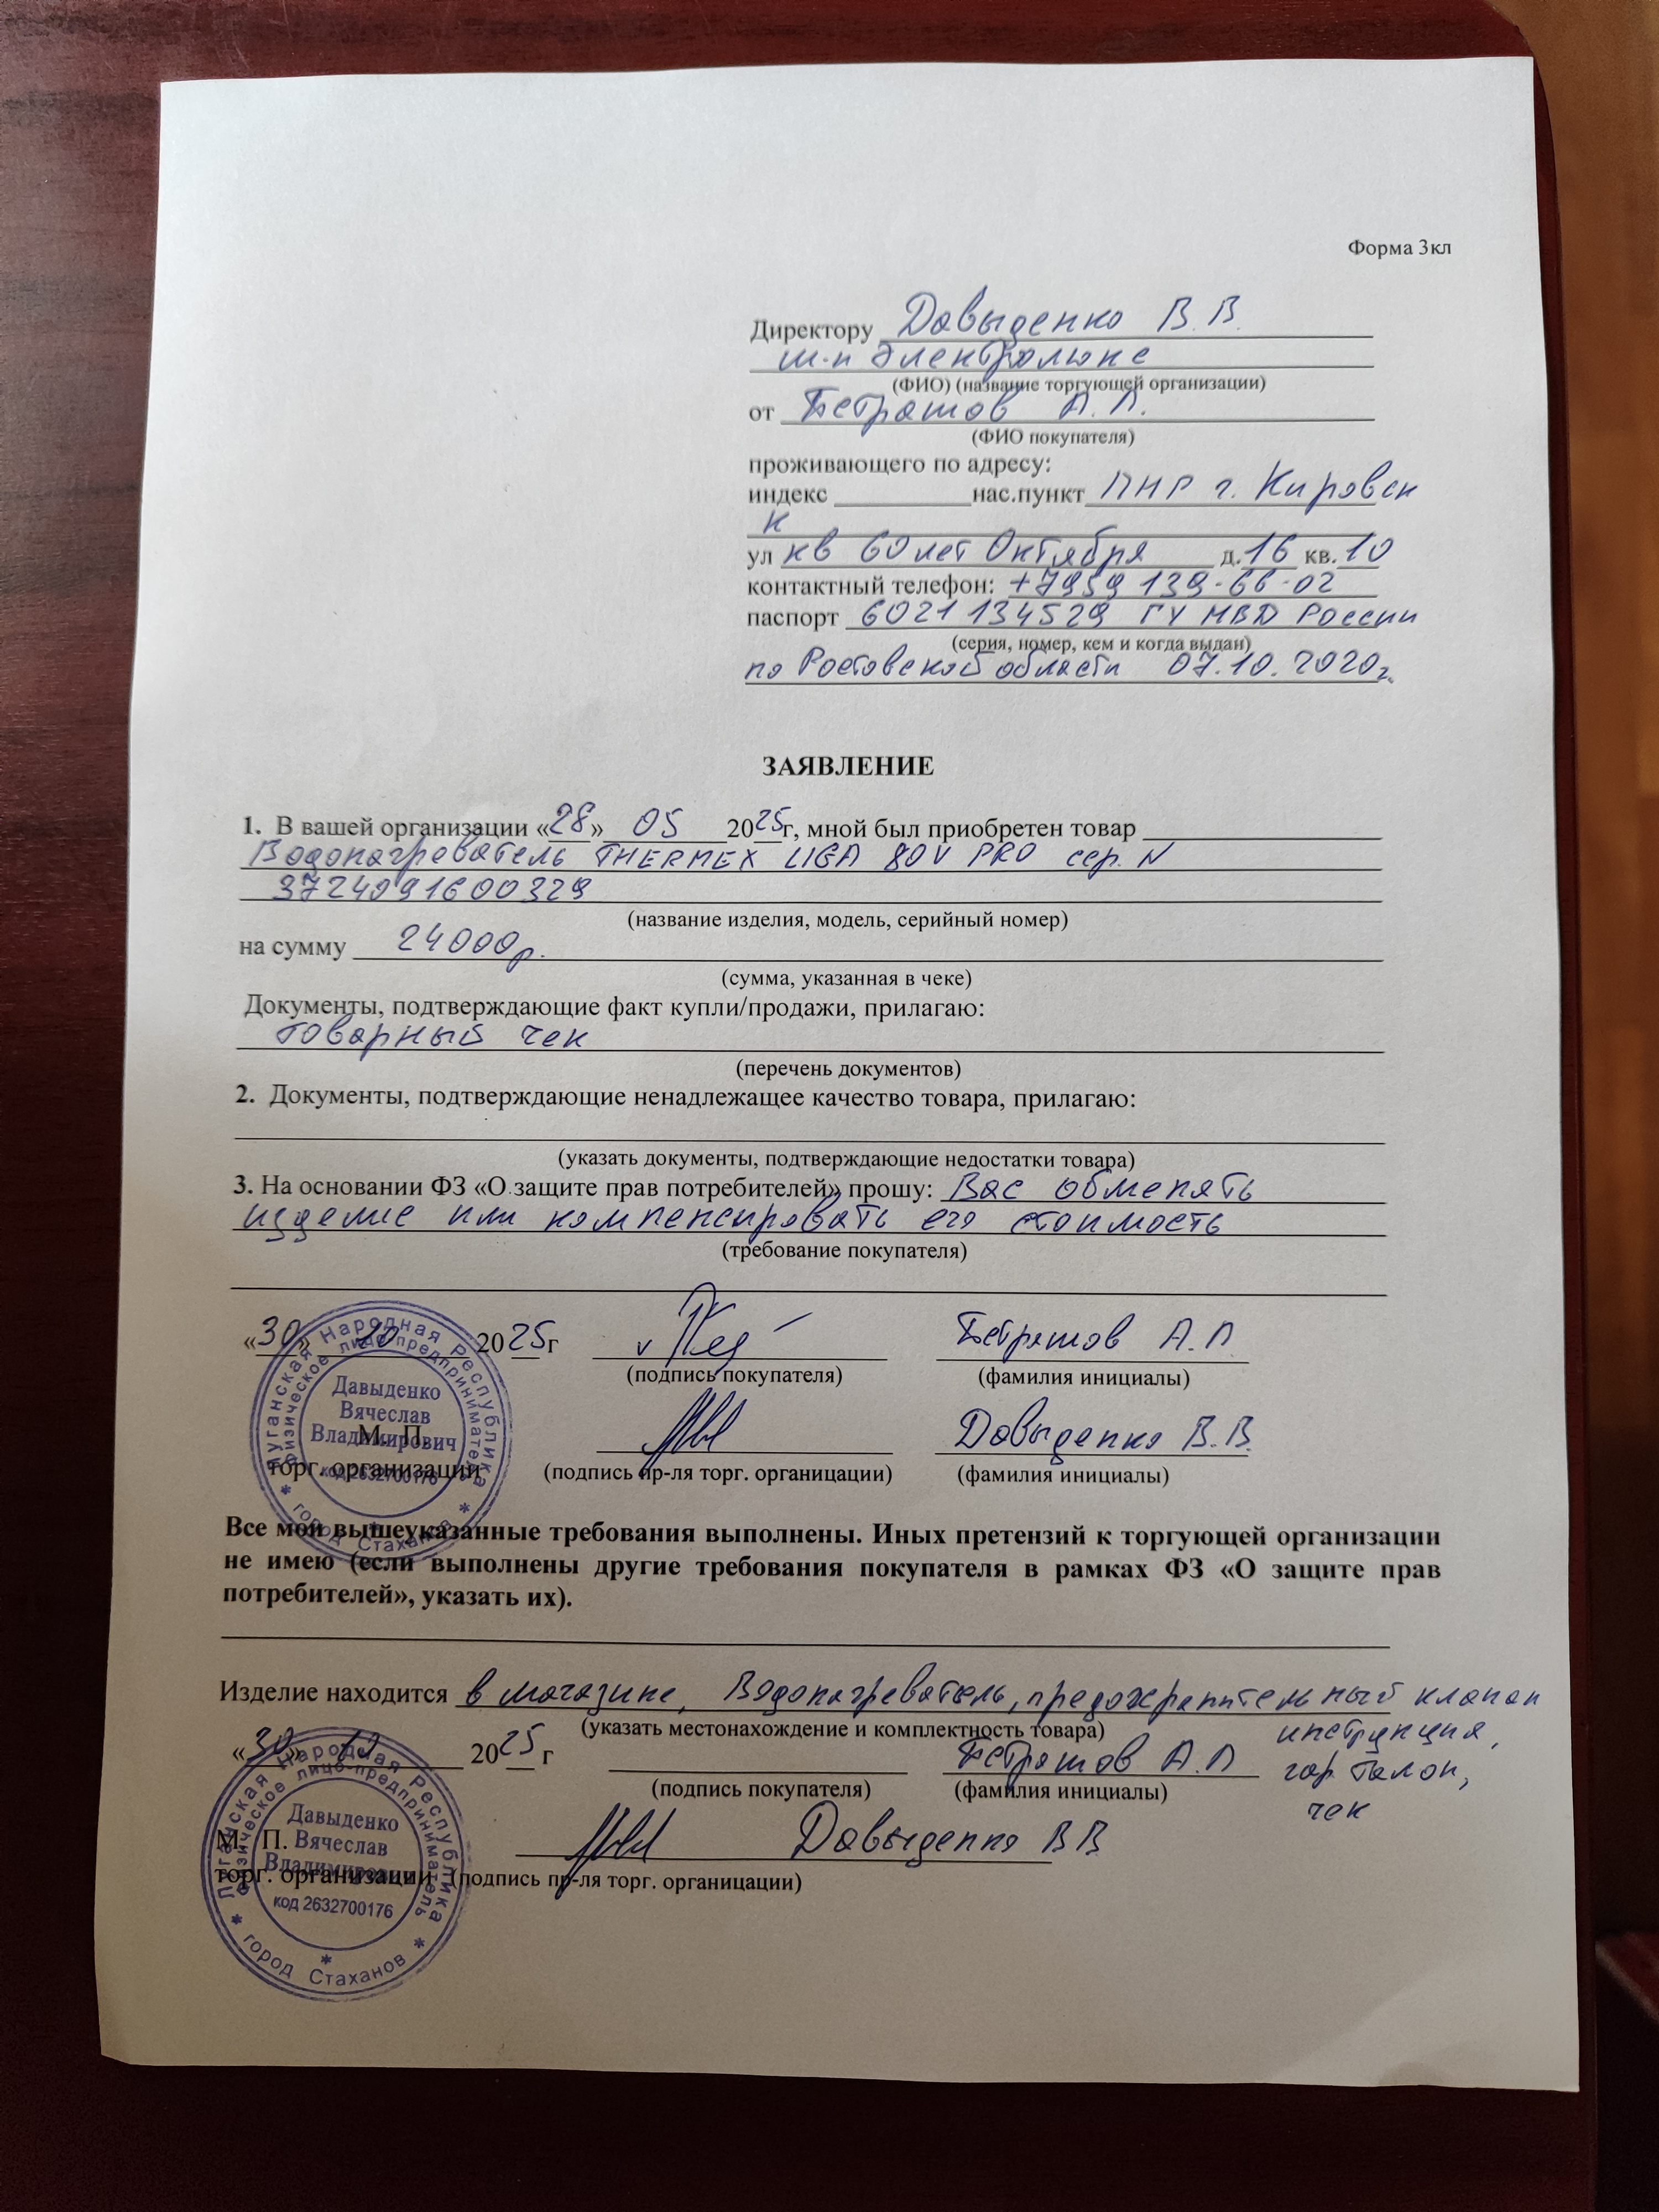 Форма 3кл
Директору Давыденко В.В.
м-н Электролюкс
(ФИО) (название торгующей организации)
от А.Л.
(ФИО покупателя)
проживающего по адресу:
индекс нас.пункт ЛНР г. Кировск
к
ул кв 60 лет Октября д.16 кв.10
контактный телефон: +7959 139-66-02
паспорт 6021 134529 ГУ МВД России
(серия, номер, кем и когда выдан)
по Ростовской области 07.10.2020г.
ЗАЯВЛЕНИЕ
1. В вашей организации «28» 05 2025г, мной был приобретен товар
Водонагреватель THERMEX LIGA 80V PRO сер. N
3724091600329
(название изделия, модель, серийный номер)
на сумму 24000р.
(сумма, указанная в чеке)
Документы, подтверждающие факт купли/продажи, прилагаю:
товарный чек
(перечень документов)
2. Документы, подтверждающие ненадлежащее качество товара, прилагаю:
(указать документы, подтверждающие недостатки товара)
3. На основании ФЗ «О защите прав потребителей» прошу: Вас обменять
изделие или компенсировать его стоимость
(требование покупателя)
«30» 10 2025г А.Л.
(подпись покупателя) (фамилия инициалы)
Луганская Народная Республика
физическое лицо-предприниматель
Давыденко
Вячеслав
Владимирович
код 2632700176
город Стаханов
М. П. Давыденко В.В.
торг. организации (подпись пр-ля торг. органицации) (фамилия инициалы)
Все мои вышеуказанные требования выполнены. Иных претензий к торгующей организации
не имею (если выполнены другие требования покупателя в рамках ФЗ «О защите прав
потребителей», указать их).
Изделие находится в магазине, Водонагреватель, предохранительный клапан
(указать местонахождение и комплектность товара) инструкция,
«30» 10 2025 г А.Л гар. талон,
(подпись покупателя) (фамилия инициалы) чек
Луганская Народная Республика
физическое лицо-предприниматель
Давыденко
Вячеслав
Владимирович
код 2632700176
город Стаханов
М. П. Давыденко В В
торг. организации (подпись пр-ля торг. органицации)